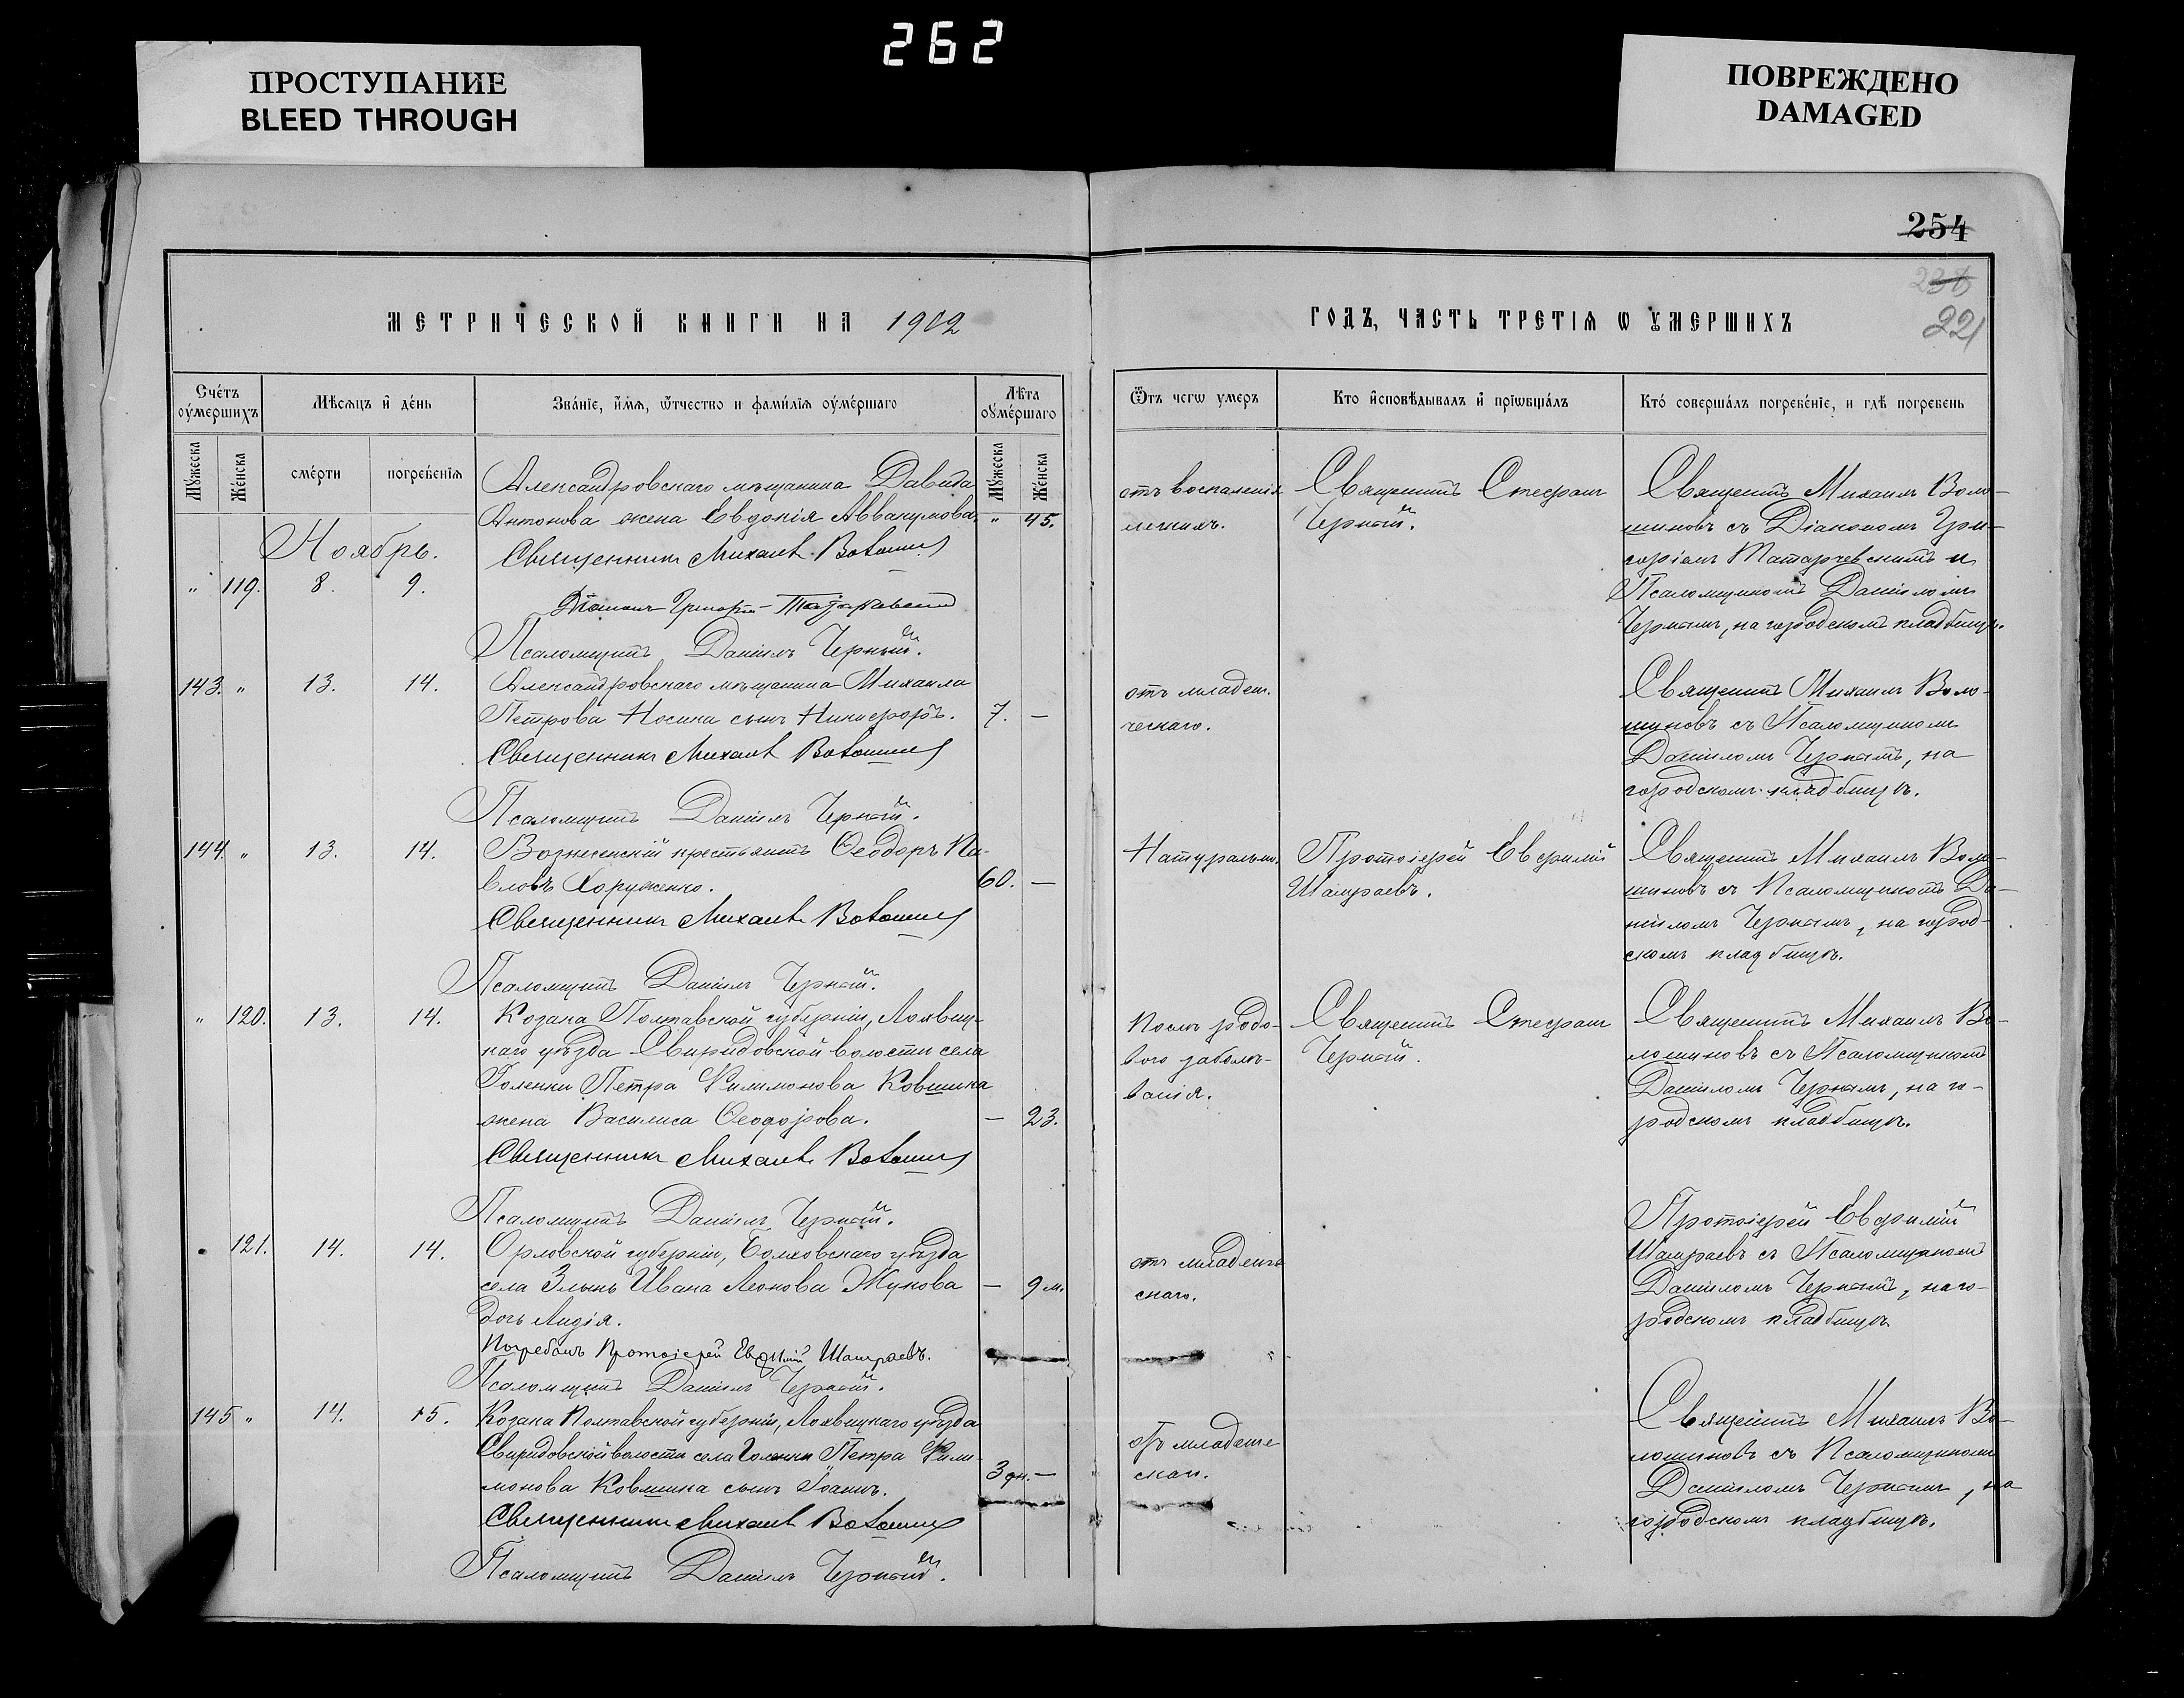 262
ПРОСТУПАНИЕ
BLEED THROUGH
ПОВРЕЖДЕНО
DAMAGED
254
238
221
МЕТРИЧЕСКОЙ КНИГИ НА 1902
ГОДЪ, ЧАСТЬ ТРЕТІЯ Ѡ УМЕРШИХЪ
Счетъ оумершихъ
Мѣсяцъ и день
Званіе, имя, отчество и фамилія оумершаго
Лѣта оумершаго
Ѿтъ чегѡ умеръ
Кто исповѣдывалъ и пріѡбщалъ
Кто совершалъ погребеніе, и гдѣ погребенъ
Мужеска
Женска
смерти
погребенія
Мужеска
Женска
Ноябрь.
" 119. 8. 9.
Александровскаго мѣщанина Давида
Антонова жена Евдокія Аввакумова. " 45.
Священникъ Михаилъ Волошинов
Діаконъ Григорій Татарчевский
Псаломщикъ Даніилъ Черный.
отъ воспаленія
легкихъ.
Священникъ Стефанъ
Черный.
Священникъ Михаилъ Воло-
шиновъ съ Діакономъ Гри-
горіемъ Татарчевскимъ и
Псаломщикомъ Даніиломъ
Чернымъ, на городскомъ кладбищѣ.
143. " 13. 14.
Александровскаго мѣщанина Михаила
Петрова Носика сынъ Никифоръ. 7. —
Священникъ Михаилъ Волошинов
Псаломщикъ Даніилъ Черный.
отъ младен.
ческаго.
Священникъ Михаилъ Воло-
шиновъ съ Псаломщикомъ
Даніиломъ Чернымъ, на
городскомъ кладбищѣ.
144. " 13. 14.
Вознесенскій крестьянинъ Ѳеодоръ Па-
вловъ Хоруженко. 60. —
Священникъ Михаилъ Волошинов
Псаломщикъ Даніилъ Черный.
Натуральн.
Протоіерей Евфимій
Шамраевъ.
Священникъ Михаилъ Воло-
шиновъ съ Псаломщикомъ Да-
ніиломъ Чернымъ, на город-
скомъ кладбищѣ.
" 120. 13. 14.
Козака Полтавской губерніи, Лохвиц-
каго уѣзда Свиридовской волости села
Голенки Петра Филимонова Ковшика
жена Василиса Ѳеодорова. — 23.
Священникъ Михаилъ Волошинов
Псаломщикъ Даніилъ Черный.
Послѣ родо-
вого заболѣ-
ванія.
Священникъ Стефанъ
Черный.
Священникъ Михаилъ Во-
лошиновъ съ Псаломщикомъ
Даніиломъ Чернымъ, на го-
родскомъ кладбищѣ.
" 121. 14. 14.
Орловской губерніи, Болховскаго уѣзда
села Злынь Ивана Леонова Жукова — 9 м.
дочь Лидія.
Погребалъ Протоіерей Евфимій Шамраевъ.
Псаломщикъ Даніилъ Черный.
отъ младенче
скаго.
Протоіерей Евфимій
Шамраевъ съ Псаломщикомъ
Даніиломъ Чернымъ, на го-
родскомъ кладбищѣ.
145 " 14. 15.
Козака Полтавской губерніи, Лохвицкаго уѣзда
Свиридовской волости села Голенки Петра Фили-
монова Ковшика сынъ Іоаннъ. 3 дн. —
Священникъ Михаилъ Волошинов
Псаломщикъ Даніилъ Черный.
отъ младенче
скаго.
Священникъ Михаилъ Во-
лошиновъ съ Псаломщикомъ
Даніиломъ Чернымъ, на
городскомъ кладбищѣ.